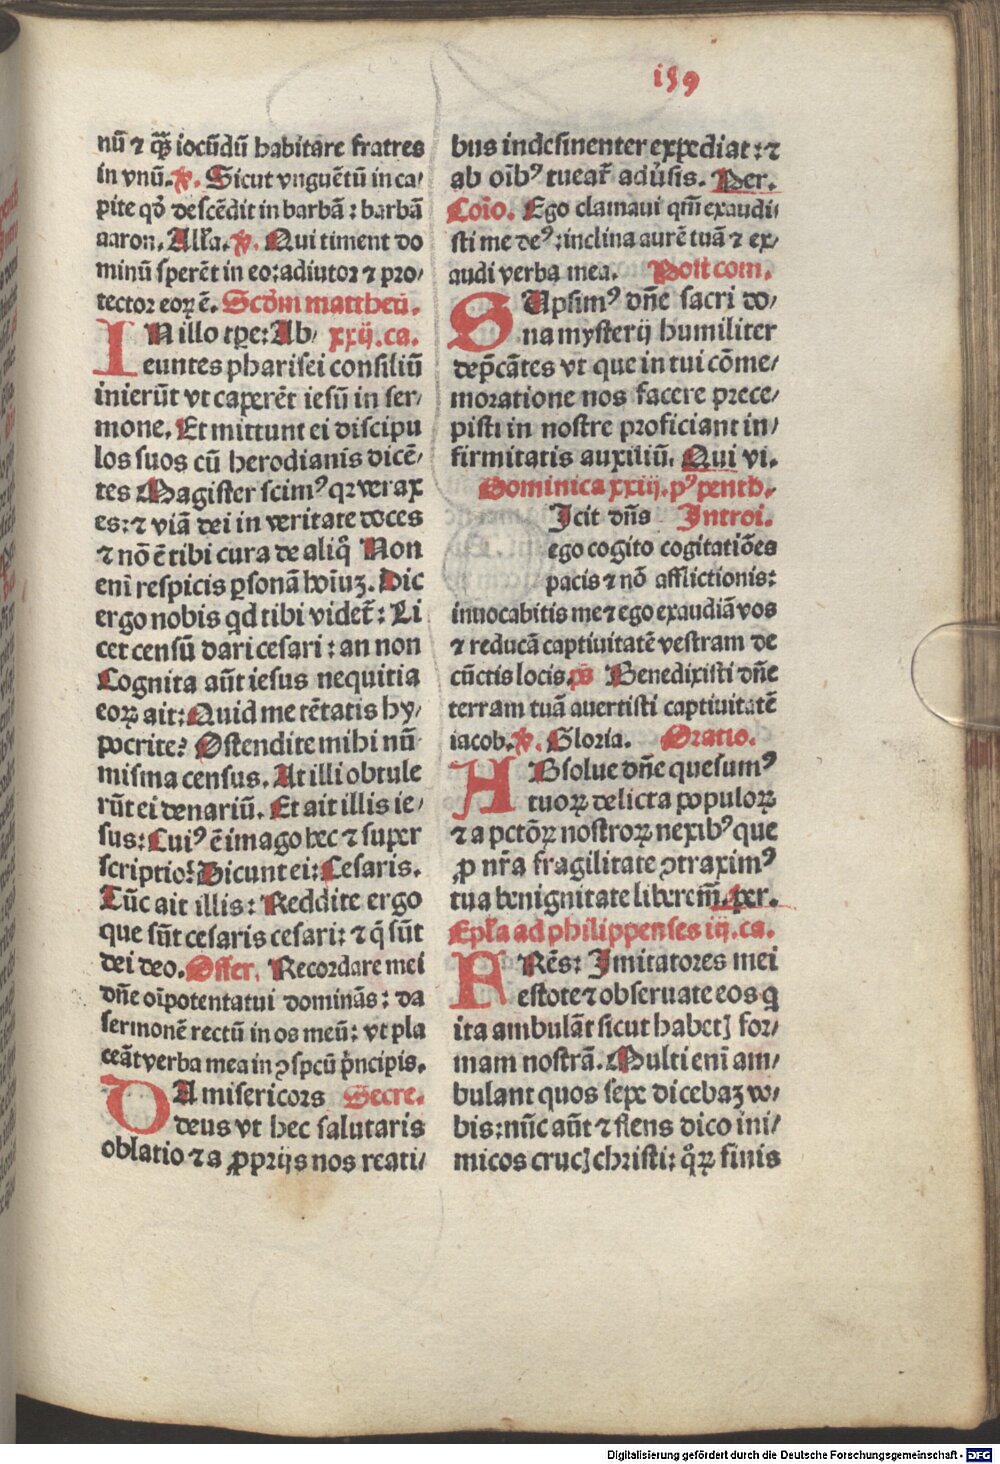 i59
nū ⁊ q̄ꝫ iocūdū habitare fratres
in vnū. ꝟ. Sicut vnguētū in ca/
pite qḋ descēdit in barbā: barbā
aaron. Alľa. ꝟ. Qui timent do
minū sperēt in eo: adiutor ⁊ pro/
tector eoꝝ ē. Scḋm mattheū.
IN illo tꝑe: Ab/ xxij.ca.
euntes pharisei consiliū
inierūt vt caperēt iesū in ser/
mone. Et mittunt ei discipu
los suos cū herodianis dicē/
tes Magister scimꝰ qꝛ verax
es: ⁊ viā dei in veritate doces
⁊ nō ē tibi cura de aliq̊ Non
eni respicis ꝑsonā hoīuꝫ. Dic
ergo nobis qd tibi videt̄: Li
cet censū dari cesari: an non
Cognita aūt iesus nequitia
eoꝝ ait: Quid me tētatis hy/
pocrite? Ostendite mihi nū
misma census. At illi obtule
rūt ei denariū. Et ait illis ie/
sus: Cuiꝰ ē imago hec ⁊ super
scriptio? Dicunt ei: Cesaris.
Tūc ait illis: Reddite ergo
que sūt cesaris cesari: ⁊ q̄ sūt
dei deo. Offer. Recordare mei
dn̄e oīpotentatui dominās: da
sermonē rectū in os meū: vt pla
ceāt verba mea in ꝯspcū p̄ncipis.
DA misericors Secre.
deus vt hec salutaris
oblatio ⁊ a ꝓprijs nos reati/
bus indesinenter expediat: ⁊
ab oībꝰ tueat̄ adu̇sis. Per.
Coīo. Ego clamaui qm̄ exaudi/
sti me deꝰ: inclina aurē tuā ⁊ ex/
audi verba mea. Post com.
SUpsimꝰ dn̄e sacri do/
na mysterij humiliter
dep̄cātes vt que in tui cōme/
moratione nos facere prece/
pisti in nostre proficiant in/
firmitatis auxiliū. Qui vi.
Dominica xxiij. pꝰ penth.
Icit dn̄s Introi.
ego cogito cogitatiōes
pacis ⁊ nō afflictionis:
inuocabitis me ⁊ ego exaudiā vos
⁊ reducā captiuitatē vestram de
cūctis locis. p̄s Benedixisti dn̄e
terram tuā auertisti captiuitatē
iacob. ꝟ. Gloria. Oratio.
ABsolue dn̄e quesumꝰ
tuoꝝ delicta populoꝝ
⁊ a pctōꝝ nostroꝝ nexibꝰ que
ꝓ nr̄a fragilitate ꝯtraximꝰ
tua benignitate liberem̄. Per.
Epľa ad philippenses iij.ca.
FRēs: Imitatores mei
estote ⁊ obseruate eos q
ita ambulāt sicut habetꝭ for/
mam nostrā. Multi eni am/
bulant quos sepe dicebaꝫ vo/
bis: nūc aūt ⁊ flens dico ini/
micos crucꝭ christi: q̊ꝝ finis
Digitalisierung gefördert durch die Deutsche Forschungsgemeinschaft - DFG